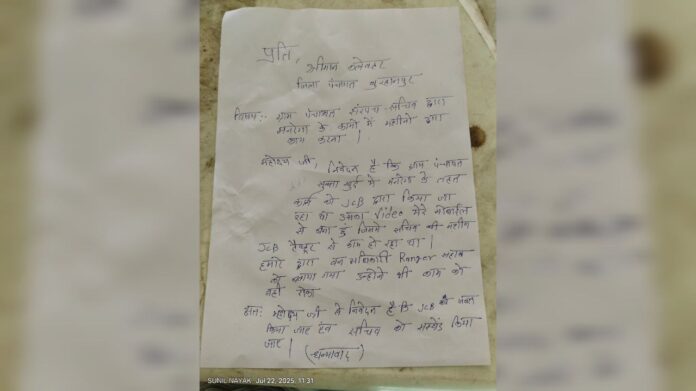 प्रति,
श्रीमान कलेक्टर
जिला पंचायत बुरहानपुर
विषय:- ग्राम पंचायत सरपंच सचिव द्वारा
मनरेगा के कामों में मशीनों द्वारा
काम करना |
महोदय जी, निवेदन है कि ग्राम पंचायत
सुक्ता खुर्द में मनरेगा के तहत
कार्य को JCB द्वारा किया जा
रहा था उसका Video मेरे मोबाईल
से बना है जिसमे सचिव की मशीन
JCB टैक्टर से काम हो रहा था |
हमारे द्वारा वन अधिकारी Ranger साहब
को बताया गया उन्होने भी काम को
नहीं रोका
अतः महोदय जी से निवेदन है कि JCB को जप्त
किया जाए एवं सचिव को सस्पेंड किया
जाए | (धन्यवाद)
SUNIL NAYAK Jul 22, 2025, 11:31